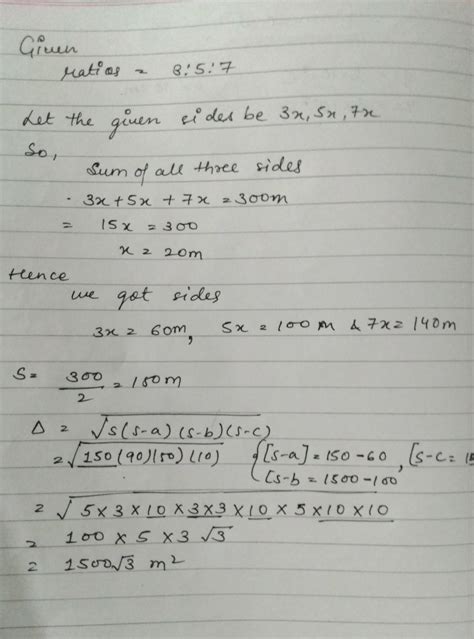 Given
ratios = 3:5:7
Let the given sides be 3x, 5x, 7x
So,
Sum of all three sides
. 3x + 5x + 7x = 300m
= 15x = 300
x = 20m
Hence
we got sides
3x = 60m, 5x = 100 m & 7x = 140m
S = 300/2 = 150m
Δ = √s(s-a)(s-b)(s-c)
= √150(90)(50)(10) {[s-a] = 150-60, [s-c = 15
[s-b = 1500-100
= √5×3×10×3×3×10×5×10×10
= 100 × 5 × 3 √3
= 1500√3 m²